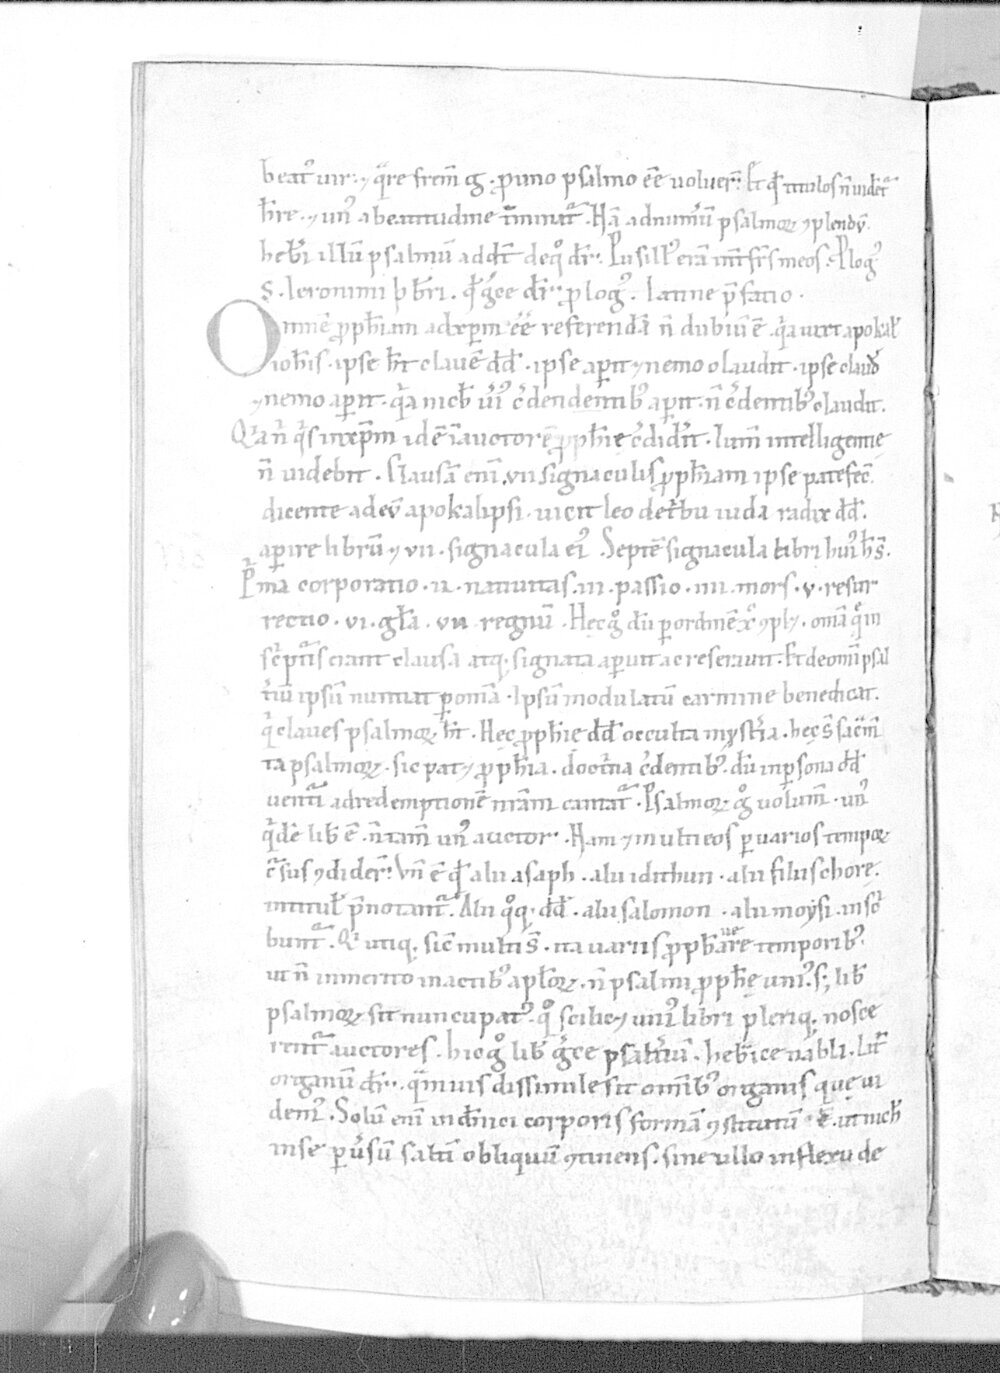 beatꝰ uir. ⁊ q̄re frem̄ g̅. pro uno psalmo eē̄ uoluer̄. Et qđ titulos n̄ uidet̄
h̄re. ⁊ unꝰ a beatitudine t̄minat̄. Nā ad numerū psalmoꝝ ꝯplendū
heb̄i illū psalmū addt̄ de qͦ dr̄. Pusillꝰ erā int̄ fr̄s meos. Plogꝰ
S. Ieronimi p̄b̄ri. qđ gͥce dr̄ prologꝰ. latine p̄fatio.
Omnē ꝓph̄iam ad xpm̄ eē̄ referendā n̄ dubiū ē. q̄a iuxta pokal̄
ioh̄is. ipse h̄t clauē dd̄. ipse apit ⁊ nemo claudit. ipse claud̄
⁊ nemo apit. q̄a nichl̄ cͥdendentibꝰ apit. n̄ cͥdentibꝰ claudit.
Q̄a n̄ qͥs in xpm̄ idē auctorē ꝓph̄ie cͥdidit. lum̄ intelligentie
n̄ uidebit. Clausā enī. vii signaculis ꝓph̄iam ipse patefec̄.
dicente adeū apokalipsi. uicit leo de tribu iuda radix dd̄.
apire librū ⁊ vii. signacula eiꝰ. Septē signacula libri huiꝰ h̄ s̄.
Pͥma corporatio. ii. natiuitas. iii. passio. iiii. mors. v. resur
rectio. vi. gl̄a. vii regnū. Hec gͦ dū p ordinē xp̄c ꝯplet. omīa qͥ in
scͥptͥis erant clausa atq; signata aperuit ac reserauit. Et de omī psal
tiū ipsū nuntiat p omīa. Ipsū modulatū carmine benedicat.
qͥ claues psalmoꝝ h̄t. Hec ꝓph̄ie dd̄ occulta mysͥtia. hec s̄ sac̄m̄
ta psalmoꝝ. sic patet ꝓph̄ia. doctͥna cͥdentibꝰ. dū in psona dd̄
uentū ad redemptionē nr̄am cantat̄. Psalmoꝝ gͦ uolum̄. unꝰ
qͥdē lib̄ ē. n̄ tam̄ unꝰ auctor. Nam ⁊ multi eos p uarios tempoꝝ
cͥsus ꝯdider̄. Un̄ ē qđ alii asaph. alii idithun. alii filiis chore.
intitul̄ p̄notant̄. Alii qͦq; dd̄. alii salomon. alii moysi. inscͥ
bunt̄. Q̄ utiq; sic̄ multi s̄. ita uariis ꝓph̄auere temporibꝰ.
ut n̄ inmerito in actibꝰ apl̄oꝝ. n̄ psalmi ꝓph̄ę uniꝰ. s; lib̄
psalmoꝝ sit nuncupatꝰ. qͦ scilicet uniꝰ libri pleriq; nosce
rent̄ auctores. hic gͦ lib̄ gͥce psaltͥiū. hebͥice nabli. lat̄
organū dr̄. q̄muis dissimile sit omībꝰ organis quę ui
demꝰ. Solū enī in dn̄ici corporis formā ꝯstitutū ē. ut nichl̄
in se puersū saltī obliquū ꝯtinens. sine ullo inflexu de